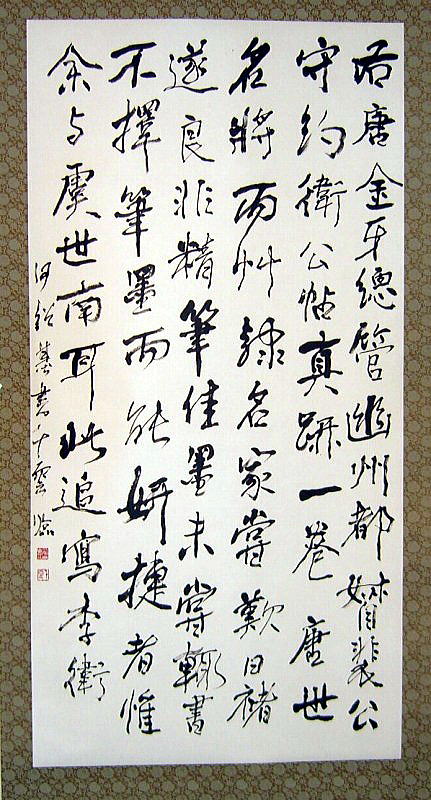 右唐金牙總管幽州都督裴公
守約衛公帖真跡一卷唐世
名將而艸隸名家嘗歎曰褚
遂良非精筆佳墨未嘗輒書
不擇筆墨而能妍捷者惟
余与虞世南耳此追寫李衛
何紹基書 雲臨